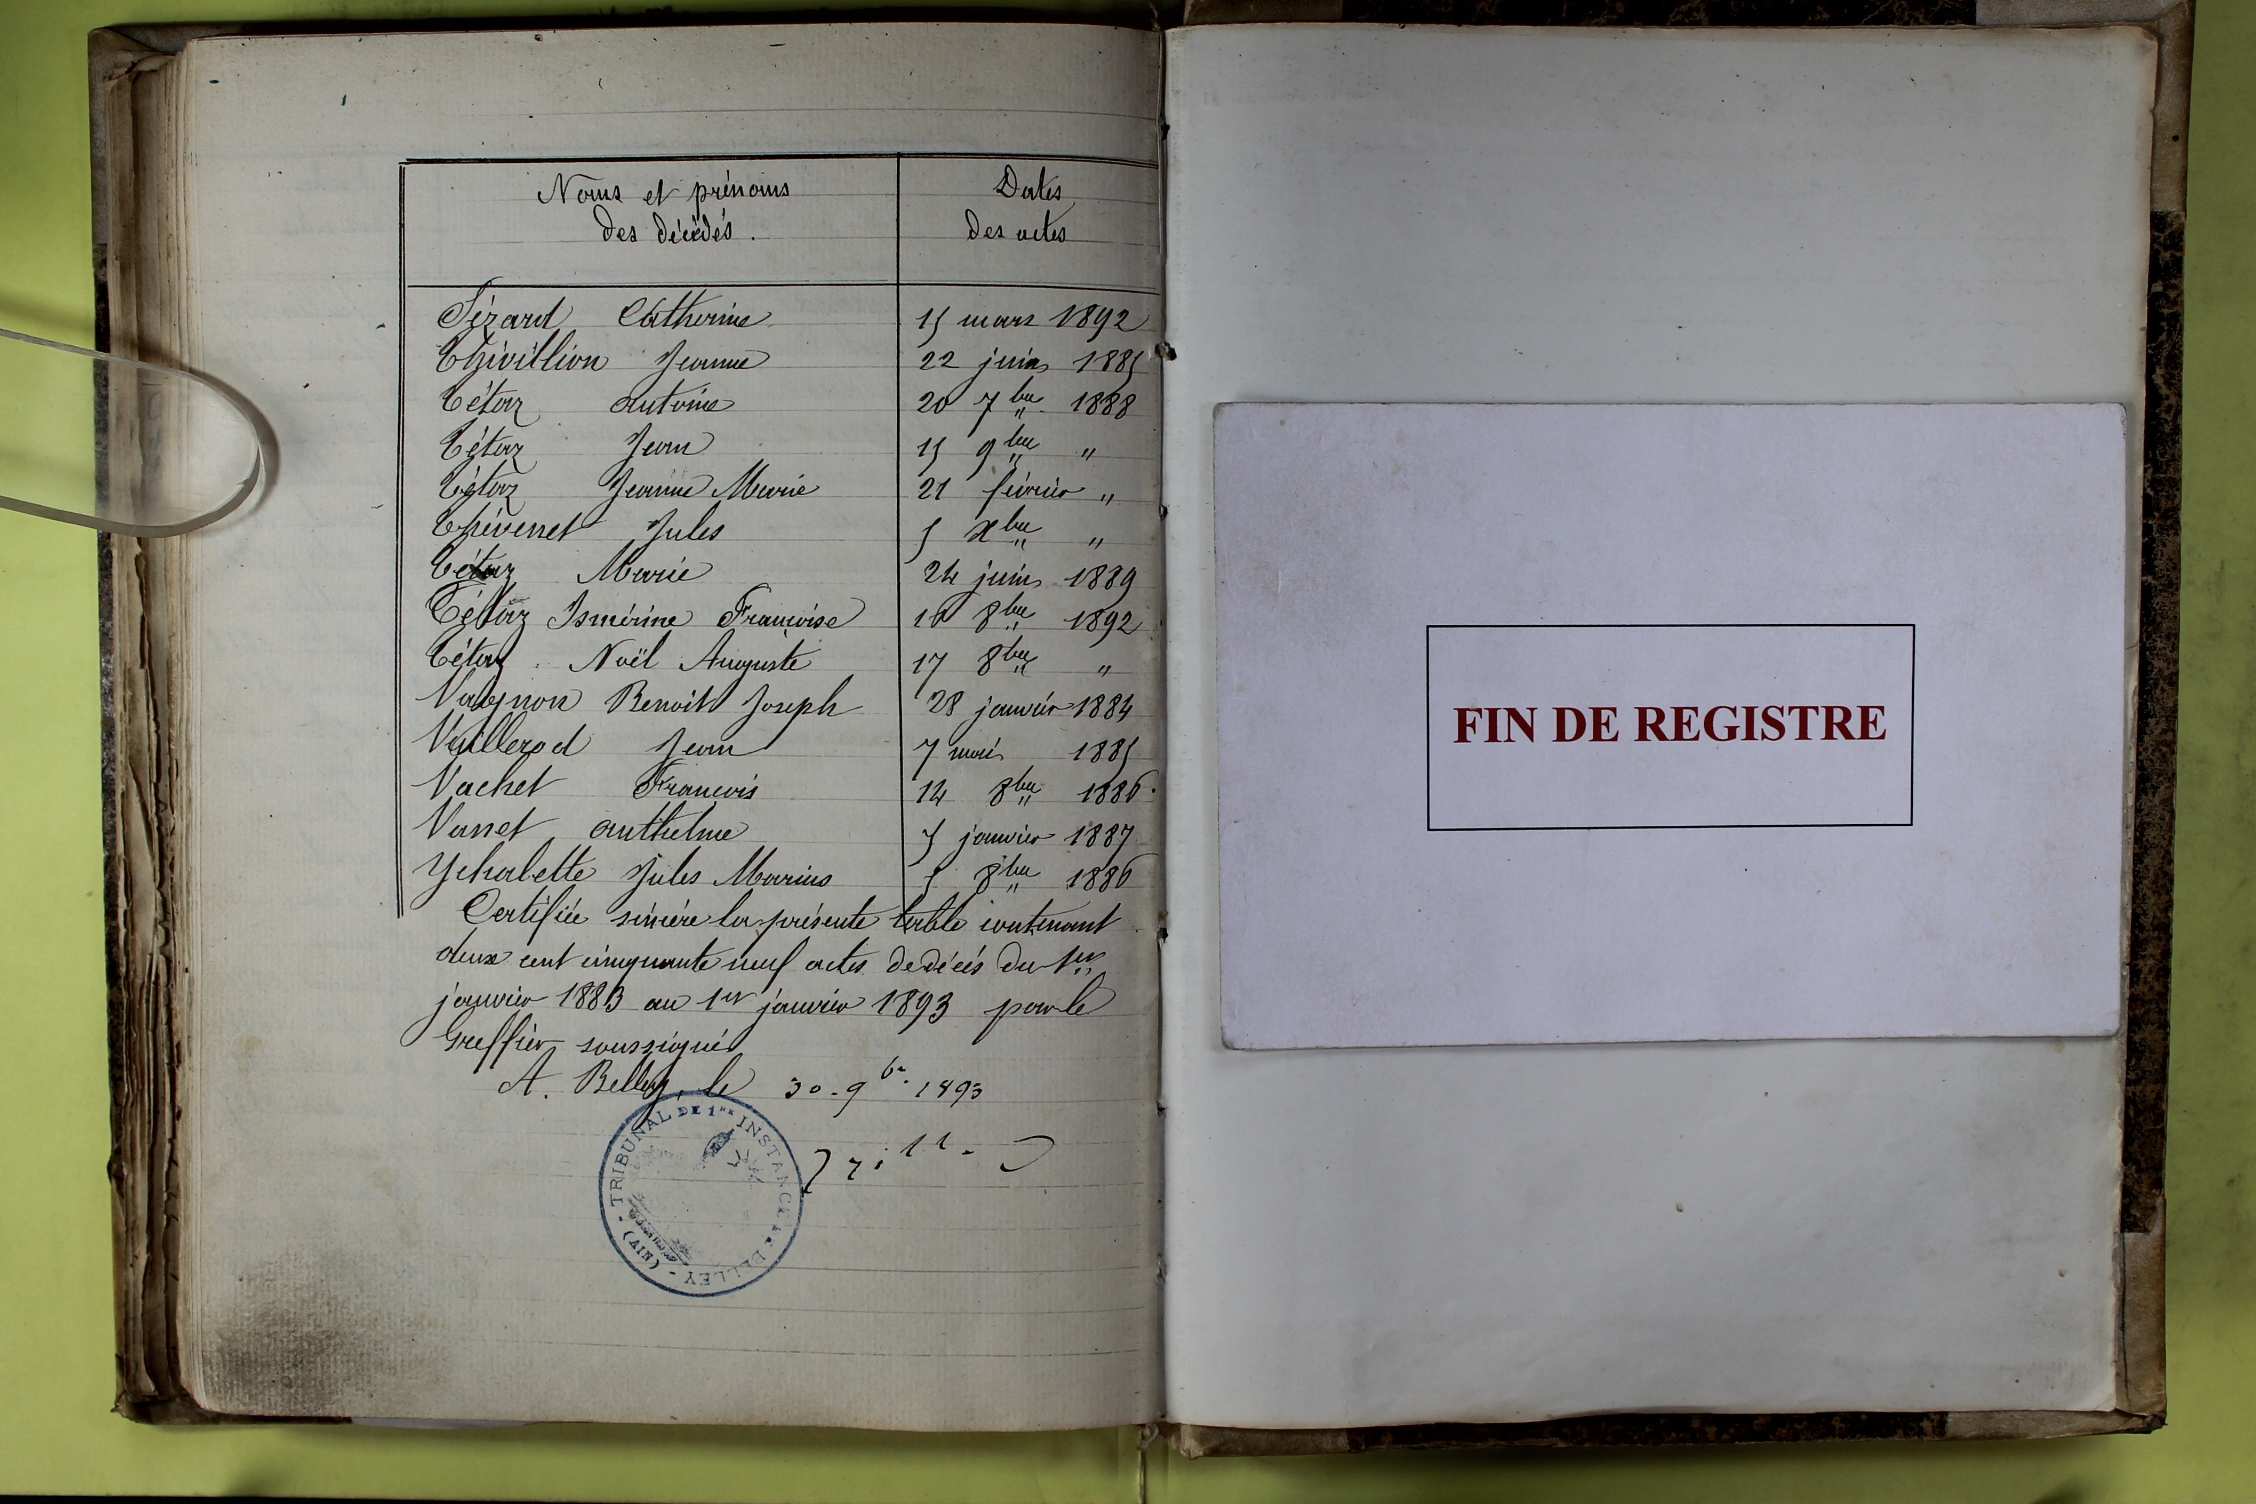 Noms et prénoms
des décédés.
Dates
des actes
Sézard Catherine 15 mars 1892
Thivillion Jeanne 22 juin 1885
Tétaz antoine 20 7bre 1888
Tétaz Jean 15 9bre "
Tétaz Jeanne Marie 21 février "
Thévenet Jules 5 Xbre "
Tétaz Marie 24 juin 1889
Tétaz Ismérine Françoise 16 8bre 1892
Tétaz Noël Auguste 17 8bre "
Vagnon Benoit Joseph 28 janvier 1884
Vuillerod Jean 7 mai 1885
Vachet François 14 8bre 1886
Vasset anthelme 5 janvier 1887
Ychalette Jules Marius 5 8bre 1886
Certifiée sincère la présente table contenant
deux cent cinquante neuf actes de décès du 1er
janvier 1883 au 1er janvier 1893 par le
Greffier soussigné
A. Belley, le 30 - 9bre. 1893
- TRIBUNAL DE 1RE INSTANCE DE BELLEY - (AIN)
FIN DE REGISTRE